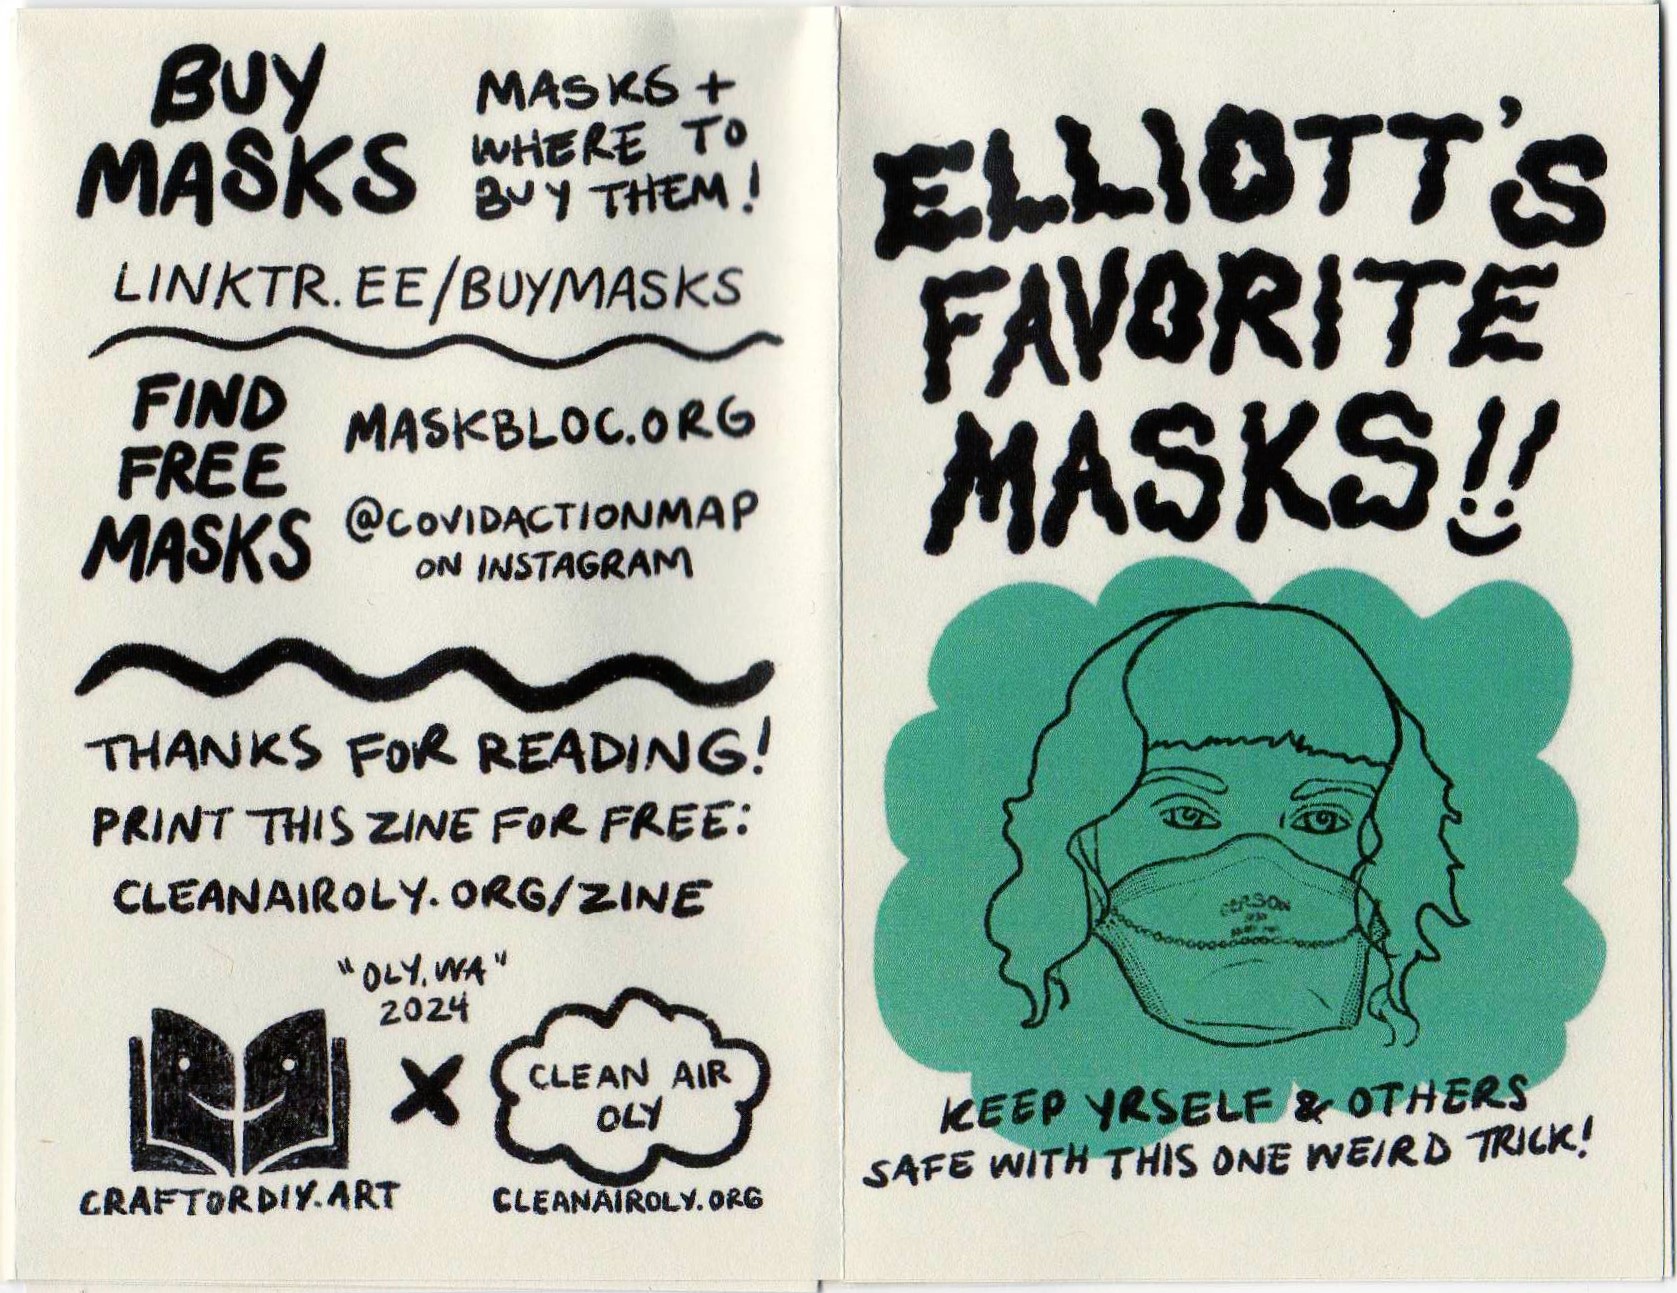 BUY
MASKS
MASKS +
WHERE TO
BUY THEM!
LINKTR.EE/BUYMASKS
FIND
FREE
MASKS
MASKBLOC.ORG
@COVIDACTIONMAP
ON INSTAGRAM
THANKS FOR READING!
PRINT THIS ZINE FOR FREE:
CLEANAIROLY.ORG/ZINE
"OLY, WA"
2024
X
CLEAN AIR
OLY
CRAFTORDIY.ART
CLEANAIROLY.ORG
ELLIOTT'S
FAVORITE
MASKS!!
KEEP YRSELF & OTHERS
SAFE WITH THIS ONE WEIRD TRICK!